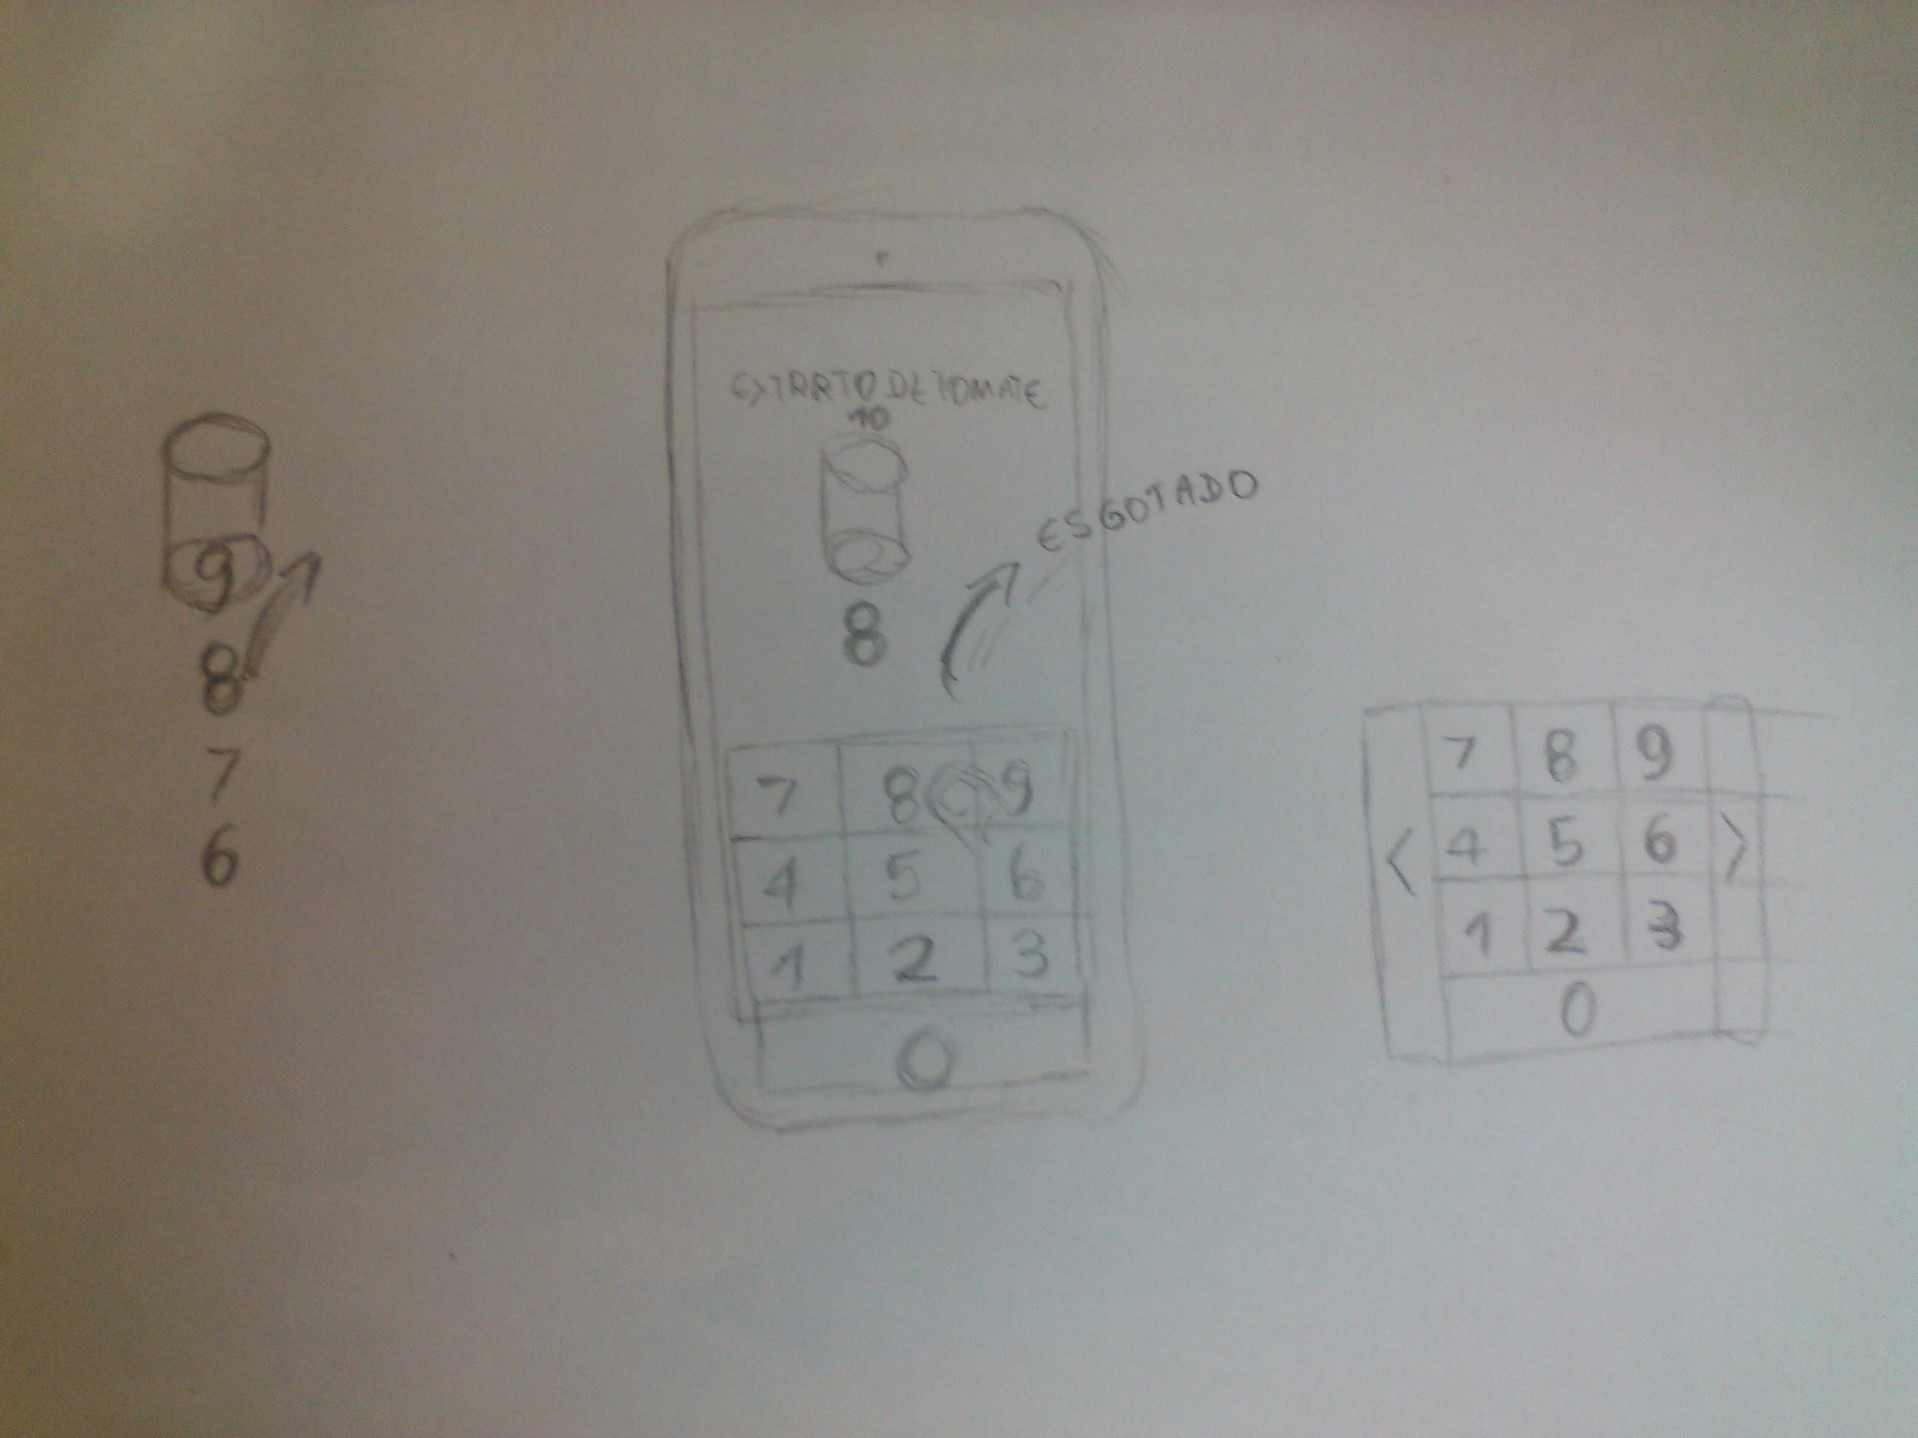 9
8
7
6
EXTRATO DE TOMATE
10
8
ESGOTADO
7 8 9
4 5 6
1 2 3
0
7 8 9
< 4 5 6 >
1 2 3
0